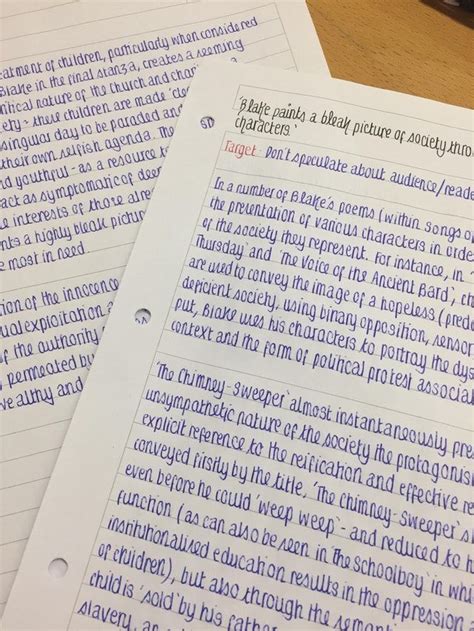 eatment of children, particularly when considered
Blake in the final stanza, creates a seeming
nitical nature of the church and
ery - these children are made 'cl
singular day to be paraded and
their own selfish agenda. Th
nd youthful - as a resource t
act as symptomatic of dee
e interests of those alre
nts a highly bleak pictur
e most in need.
tion of the innocence
ual exploitation a
of the authority
permeated by
wealthy and
'Blake paints a bleak picture of society thro
characters.'
Target: Don't speculate about audience/reade
In a number of Blake's poems (within Songs o
the presentation of various characters in orde
of the society they represent. For instance, in
Thursday' and 'The Voice of the Ancient Bard', ch
are used to convey the image of a hopeless (pred
deficient society, using binary opposition, sensor
put, Blake uses his characters to portray the dys
context and the form of political protest associat
'The Chimney-Sweeper' almost instantaneously pre
unsympathetic nature of the society the protagonis
explicit reference to the reification and effective re
conveyed firstly by the title, 'The Chimney-Sweeper's
even before he could 'weep weep' - and reduced to h
function (as can also be seen in 'The Schoolboy' in wh
institutionalised education results in the oppression
of children), but also through the semant
child is 'sold' by his father
slavery, an